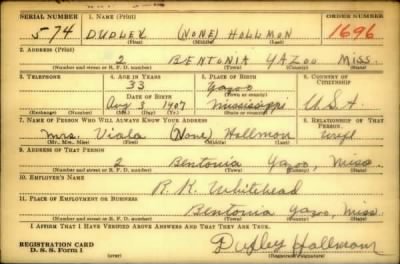 SERIAL NUMBER 1. NAME (Print) ORDER NUMBER
574 DUDLEY (NONE) HOLLMON 1696
(First) (Middle) (Last)
2. ADDRESS (Print)
2 BENTONIA YAZOO MISS.
(Number and street or R. F. D. number) (Town) (County) (State)
3. TELEPHONE 4. AGE IN YEARS 5. PLACE OF BIRTH 6. COUNTRY OF CITIZENSHIP
33 Yazoo
DATE OF BIRTH (Town or county)
Aug 3 1907 Mississippi U.S.A.
(Exchange) (Number) (Mo.) (Day) (Yr.) (State or country)
7. NAME OF PERSON WHO WILL ALWAYS KNOW YOUR ADDRESS 8. RELATIONSHIP OF THAT PERSON
Mrs. Viala (None) Hollmon Wife
(Mr., Mrs., Miss) (First) (Middle) (Last)
9. ADDRESS OF THAT PERSON
2 Bentonia Yazoo, Miss.
(Number and street or R. F. D. number) (Town) (County) (State)
10. EMPLOYER'S NAME
R. K. Whitehead
11. PLACE OF EMPLOYMENT OR BUSINESS
Bentonia Yazoo, Miss.
(Number and street or R. F. D. number) (Town) (County) (State)
I AFFIRM THAT I HAVE VERIFIED ABOVE ANSWERS AND THAT THEY ARE TRUE.
REGISTRATION CARD
D. S. S. Form 1 Dudley Hollmon
(Registrant's signature)